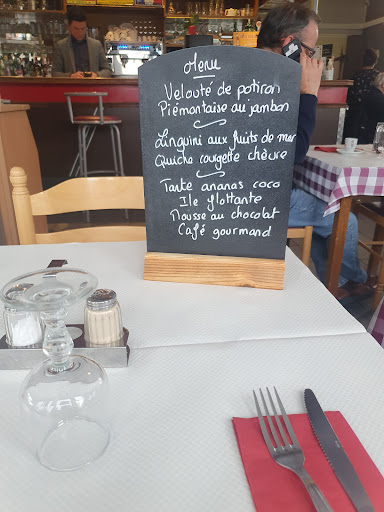 Menu
Velouté de potiron
Piémontaise au jambon
Linguini aux fruits de mer
Quiche courgette chèvre
Tarte ananas coco
Ile flottante
Mousse au chocolat
Café gourmand